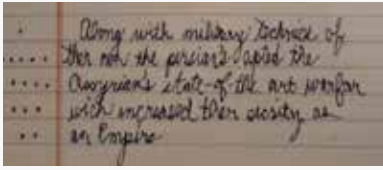 Along with military technics of
ther non the persian's apted the
Assyrian's state-of-the art warfar
with increased ther as
an Empire